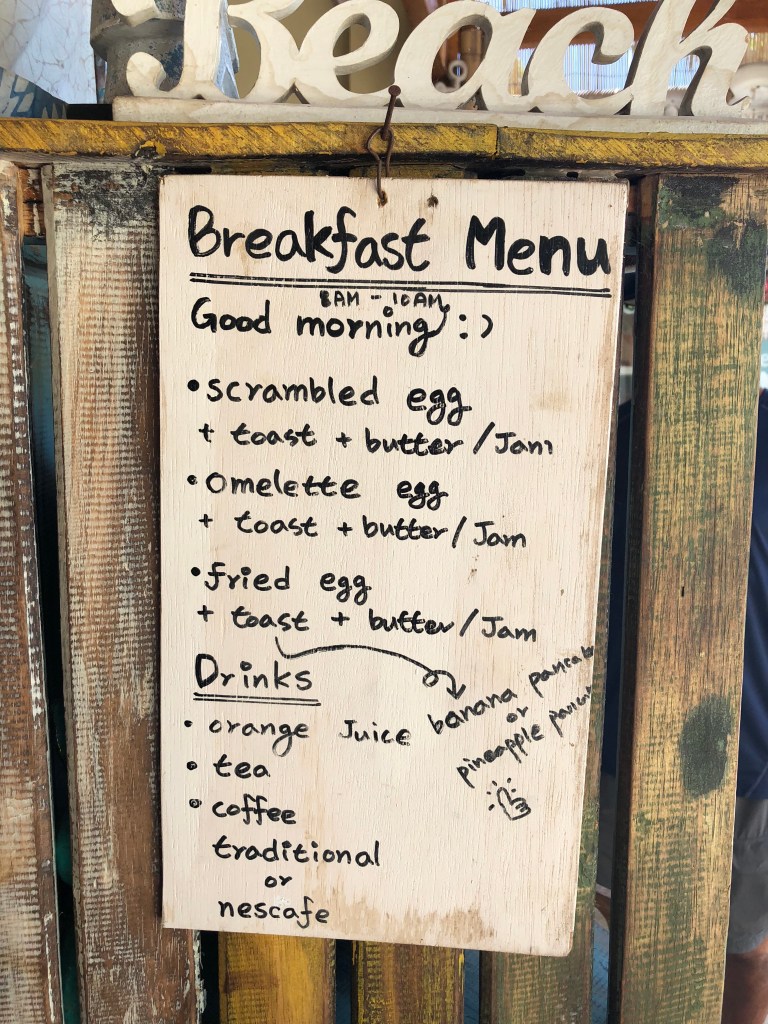 Beach
Breakfast Menu
8AM - 10AM
Good morning :)
• scrambled egg
+ toast + butter / Jam
• omelette egg
+ toast + butter / Jam
• fried egg
+ toast + butter / Jam
banana pancake
or
pineapple pancake
Drinks
• orange Juice
• tea
• coffee
traditional
or
nescafe